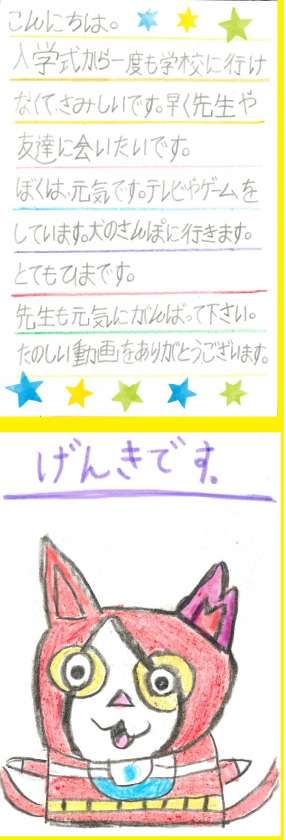 こんにちは。
入学式から一度も学校に行け
なくて、さみしいです。早く先生や
友達に会いたいです。
ぼくは、元気です。テレビやゲームを
しています。犬のさんぽに行きます。
とてもひまです。
先生も元気にがんばって下さい。
たのしい動画をありがとうございます。
げんきです。